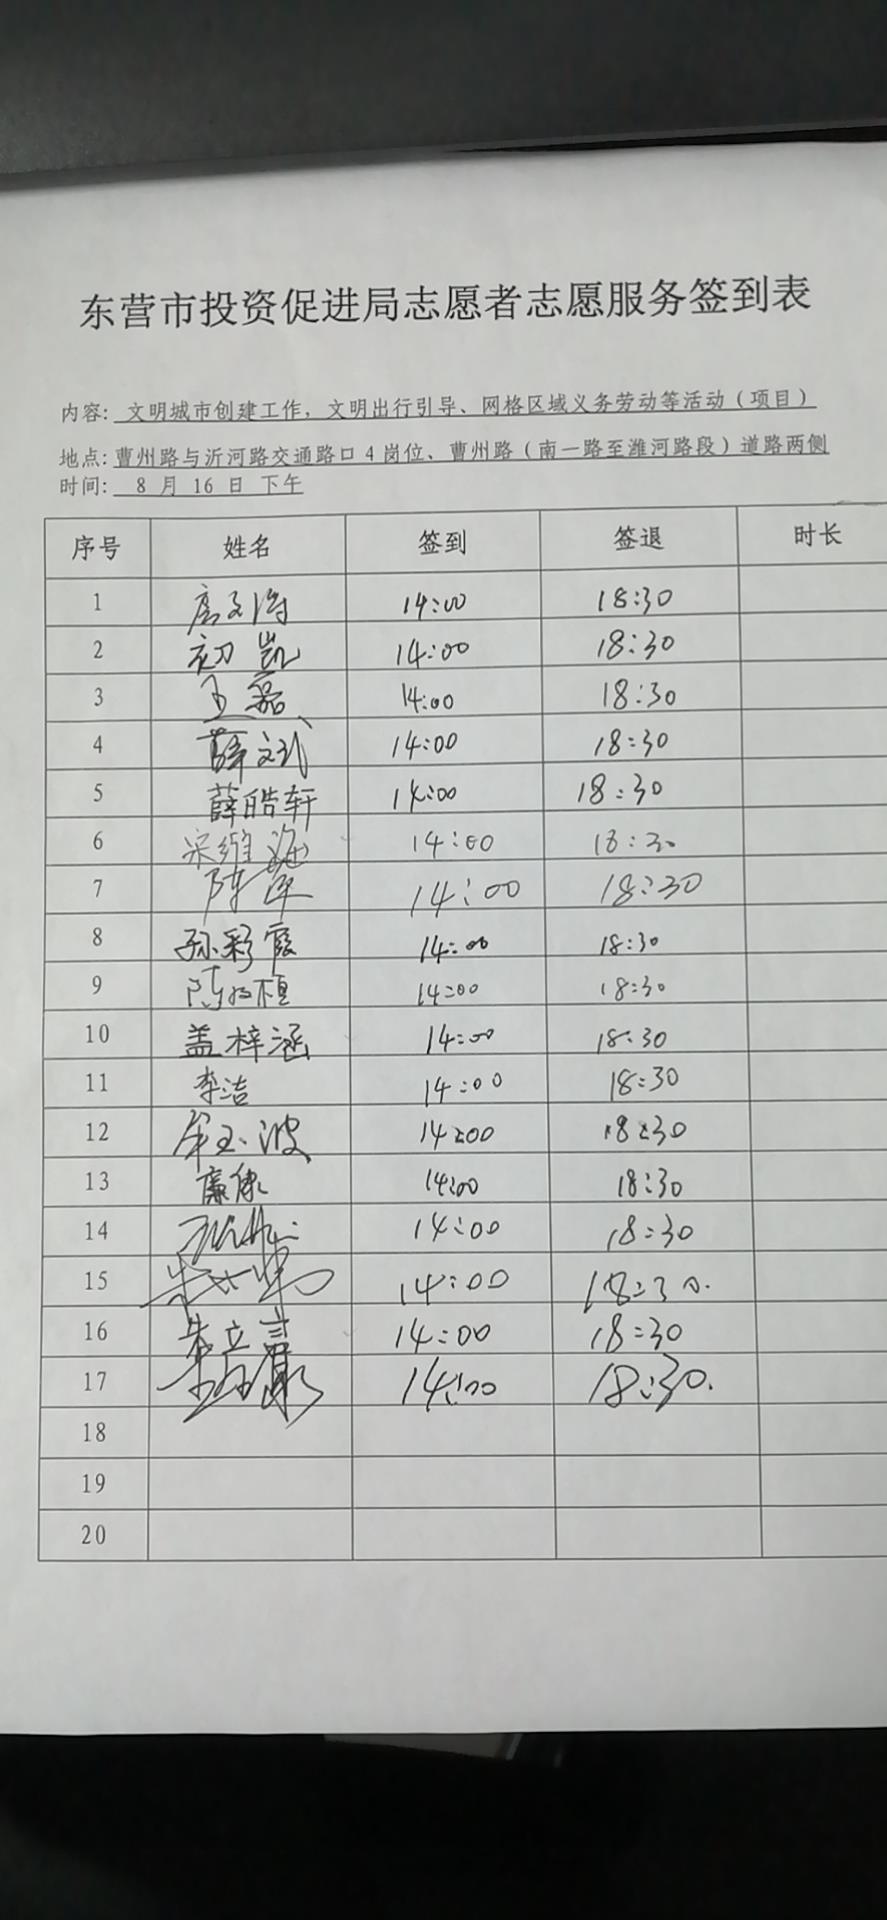 东营市投资促进局志愿者志愿服务签到表
内容: 文明城市创建工作，文明出行引导、网格区域义务劳动等活动（项目）
地点: 曹州路与沂河路交通路口 4 岗位、曹州路（南一路至潍河路段）道路两侧
时间: 8 月 16 日 下午
序号 姓名 签到 签退 时长
1 14:00 18:30
2 初凯 14:00 18:30
3 王磊 14:00 18:30
4 薛文武 14:00 18:30
5 薛皓轩 14:00 18:30
6 宋维海 14:00 18:30
7 陈军 14:00 18:30
8 孙彩霞 14:00 18:30
9 14:00 18:30
10 盖梓涵 14:00 18:30
11 李洁 14:00 18:30
12 牟玉波 14:00 18:30
13 廉康 14:00 18:30
14 14:00 18:30
15 14:00 18:30.
16 朱立言 14:00 18:30
17 14:00 18:30.
18
19
20